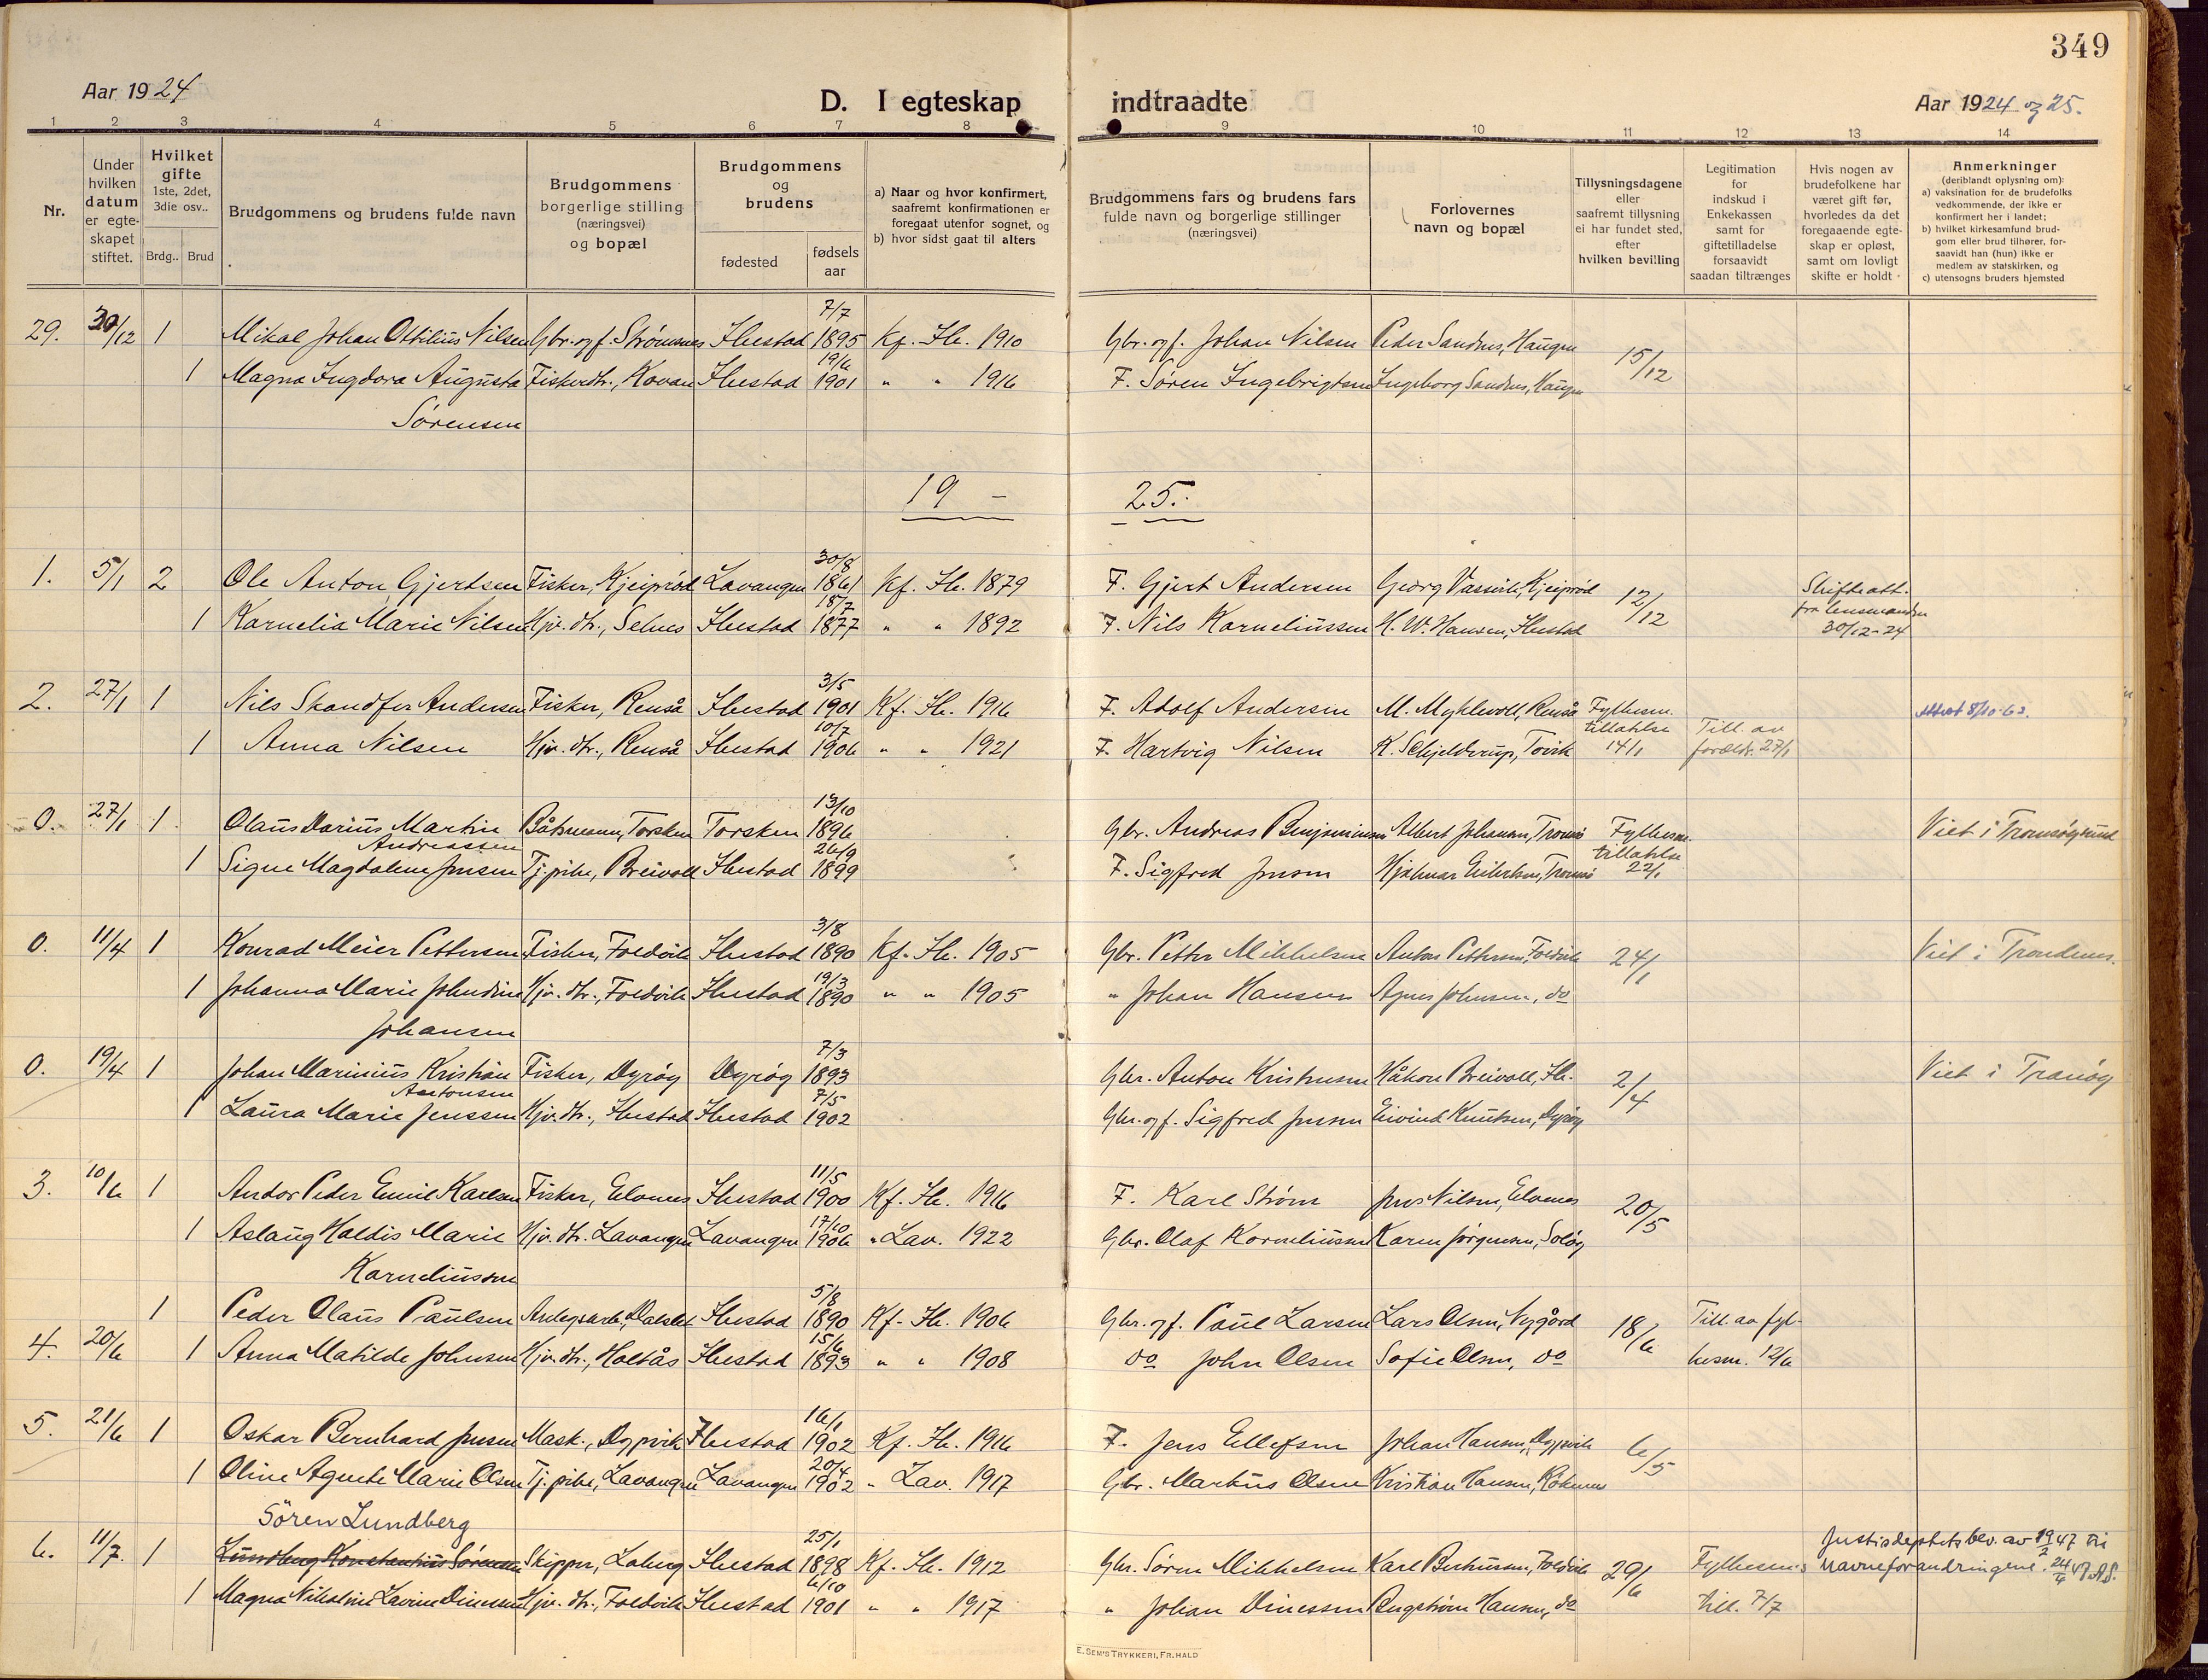 349
Aar 1924
D. I egteskap indtraadte
Aar 1924 og 25.
1 2 3 4 5 6 7 8 9 10 11 12 13 14
Nr.
Under hvilken datum er egteskapet stiftet.
Hvilket gifte 1ste, 2det, 3die osv..
Brdg.. Brud
Brudgommens og brudens fulde navn
Brudgommens borgerlige stilling (næringsvei) og bopæl
Brudgommens og brudens
fødested
fødsels aar
a) Naar og hvor konfirmert, saafremt konfirmationen er foregaat utenfor sognet, og
b) hvor sidst gaat til alters
Brudgommens fars og brudens fars fulde navn og borgerlige stillinger (næringsvei)
Forlovernes navn og bopæl
Tillysningsdagene eller saafremt tillysning ei har fundet sted, efter hvilken bevilling
Legitimation for indskud i Enkekassen samt for giftetilladelse forsaavidt saadan tiltrænges
Hvis nogen av brudefolkene har været gift før, hvorledes da det foregaaende egteskap er opløst, samt om lovligt skifte er holdt
Anmerkninger
(deriblandt oplysning om):
a) vaksination for de brudefolks vedkommende, der ikke er konfirmert her i landet;
b) hvilket kirkesamfund brudgom eller brud tilhører, forsaavidt han (hun) ikke er medlem av statskirken, og
c) utensogns bruders hjemsted
7/7
29. 30/12 1 Mikal Johan Ottilius Nilsen Gbr. og f. Strømnes Ibestad 1895 Kf. Ib. 1910 Gbr. og f. Johan Nilsen Peder Sandnes, Haugen 15/12
19/6
1 Magna Ingdora Augusta Fiskerdtr., Kovan Ibestad 1901 " " 1916 F. Søren Ingebrigtsen Ingeborg Sandnes, Haugen
Sørensen
19 - 25.
30/8
1. 5/1 2 Ole Anton Gjertsen Fisker, Kjeiprød Lavangen 1861 Kf. Ib. 1879 F. Gjert Andersen Georg Vassvik, Kjeiprød 12/12 Skifteatt. fra lensmanden 30/12-24
18/7
1 Kornelia Marie Nilsen Hjv. dtr., Selnes Ibestad 1877 " " 1892 F. Nils Korneliussen H. W. Hansen, Ibestad
3/5
2. 27/1 1 Nils Skandfer Andersen Fisker, Renså Ibestad 1901 Kf. Ib. 1916 F. Adolf Andersen M. Myklevoll, Renså Fylkesm. tillatelse 14/1 Attest 8/10-62.
10/7
1 Anna Nilsen Hjv. dtr., Renså Ibestad 1906 " " 1921 F. Hartvig Nilsen K. Schjelderup, Tovik Till. av foreldr. 27/1
13/10
0. 27/1 1 Olaus Darius Martin Båtsmann, Torsken Torsken 1896 Gbr. Andreas Benjaminsen Albert Johansen, Tromsø Fylkesm. tillatelse 22/1 Viet i Tromsøysund
Andreassen
26/9
1 Signe Magdalene Jensen Tj.pike, Breivoll Ibestad 1899 F. Sigfred Jensen Hjalmar Eilertsen, Tromsø
3/8
0. 11/4 1 Konrad Meier Pettersen Fisker, Foldvik Ibestad 1890 Kf. Ib. 1905 Gbr. Petter Mikkelsen Anton Pettersen, Foldvik 24/1 Viet i Trondenes.
19/3
1 Johanna Marie Johndine Hjv. dtr., Foldvik Ibestad 1890 " " 1905 " Johan Hansen Agnes Johnsen, do
Johansen
7/3
0. 19/4 1 Johan Marinius Kristian Fisker, Dyrøy Dyrøy 1893 Gbr. Anton Kristensen Håkon Breivoll, Ib. 2/4 Viet i Tranøy
Antonsen
7/5
1 Laura Marie Jenssen Hjv. dtr., Ibestad Ibestad 1902 Gbr. og f. Sigfred Jensen Eivind Knutsen, Dyrøy
11/5
3. 10/6 1 Andor Peder Emil Karlsen Fisker, Elvenes Ibestad 1900 Kf. Ib. 1916 F. Karl Strøm Jens Nilsen, Elvenes 20/5
17/10
1 Aslaug Haldis Marie Hjv. dtr. Lavangen Lavangen 1906 " Lav. 1922 Gbr. Olaf Korneliussen Karen Jørgensen, Soløy
Korneliussen
5/8
1 Peder Olaus Paulsen Anlegsarb., Dalslet Ibestad 1890 Kf. Ib. 1906 Gbr. og f. Paul Larsen Lars Olsen, Nygård 18/6 Till. av fyl-
15/6
4. 20/6 1 Anna Matilde Johnsen Hjv. dtr., Holtås Ibestad 1893 " " 1908 do John Olsen Sofie Olsen, do kesm. 12/6
16/1
5. 21/6 1 Oskar Bernhard Jensen Mask., Dypvik Ibestad 1902 Kf. Ib. 1916 F. Jens Ellefsen Johan Hansen, Dypvik 6/5
20/4
1 Oline Agnete Marie Olsen Tj. pike, Lavangen Lavangen 1902 " Lav. 1917 Gbr. Markus Olsen Kristian Hansen, Røkenes
Sören Lundberg
25/1
6. 11/7. 1 Lundberg Konstantius Sørensen Skipper, Loberg Ibestad 1898 Kf. Ib. 1912 Gbr. Søren Mikkelsen Karl Berthinsen, Foldvik 29/6 Fylkesm.s Justisdeptets bev. av 19/2 47 til navneforandringene. 24/4 47 A.S.
6/10
1 Magna Nikoline Lavine Dinessen Hjv. dtr., Foldvik Ibestad 1901 " " 1917 " Johan Dinessen Bergstrøm Hansen, do till. 7/7
E. SEM'S TRYKKERI, FR.HALD